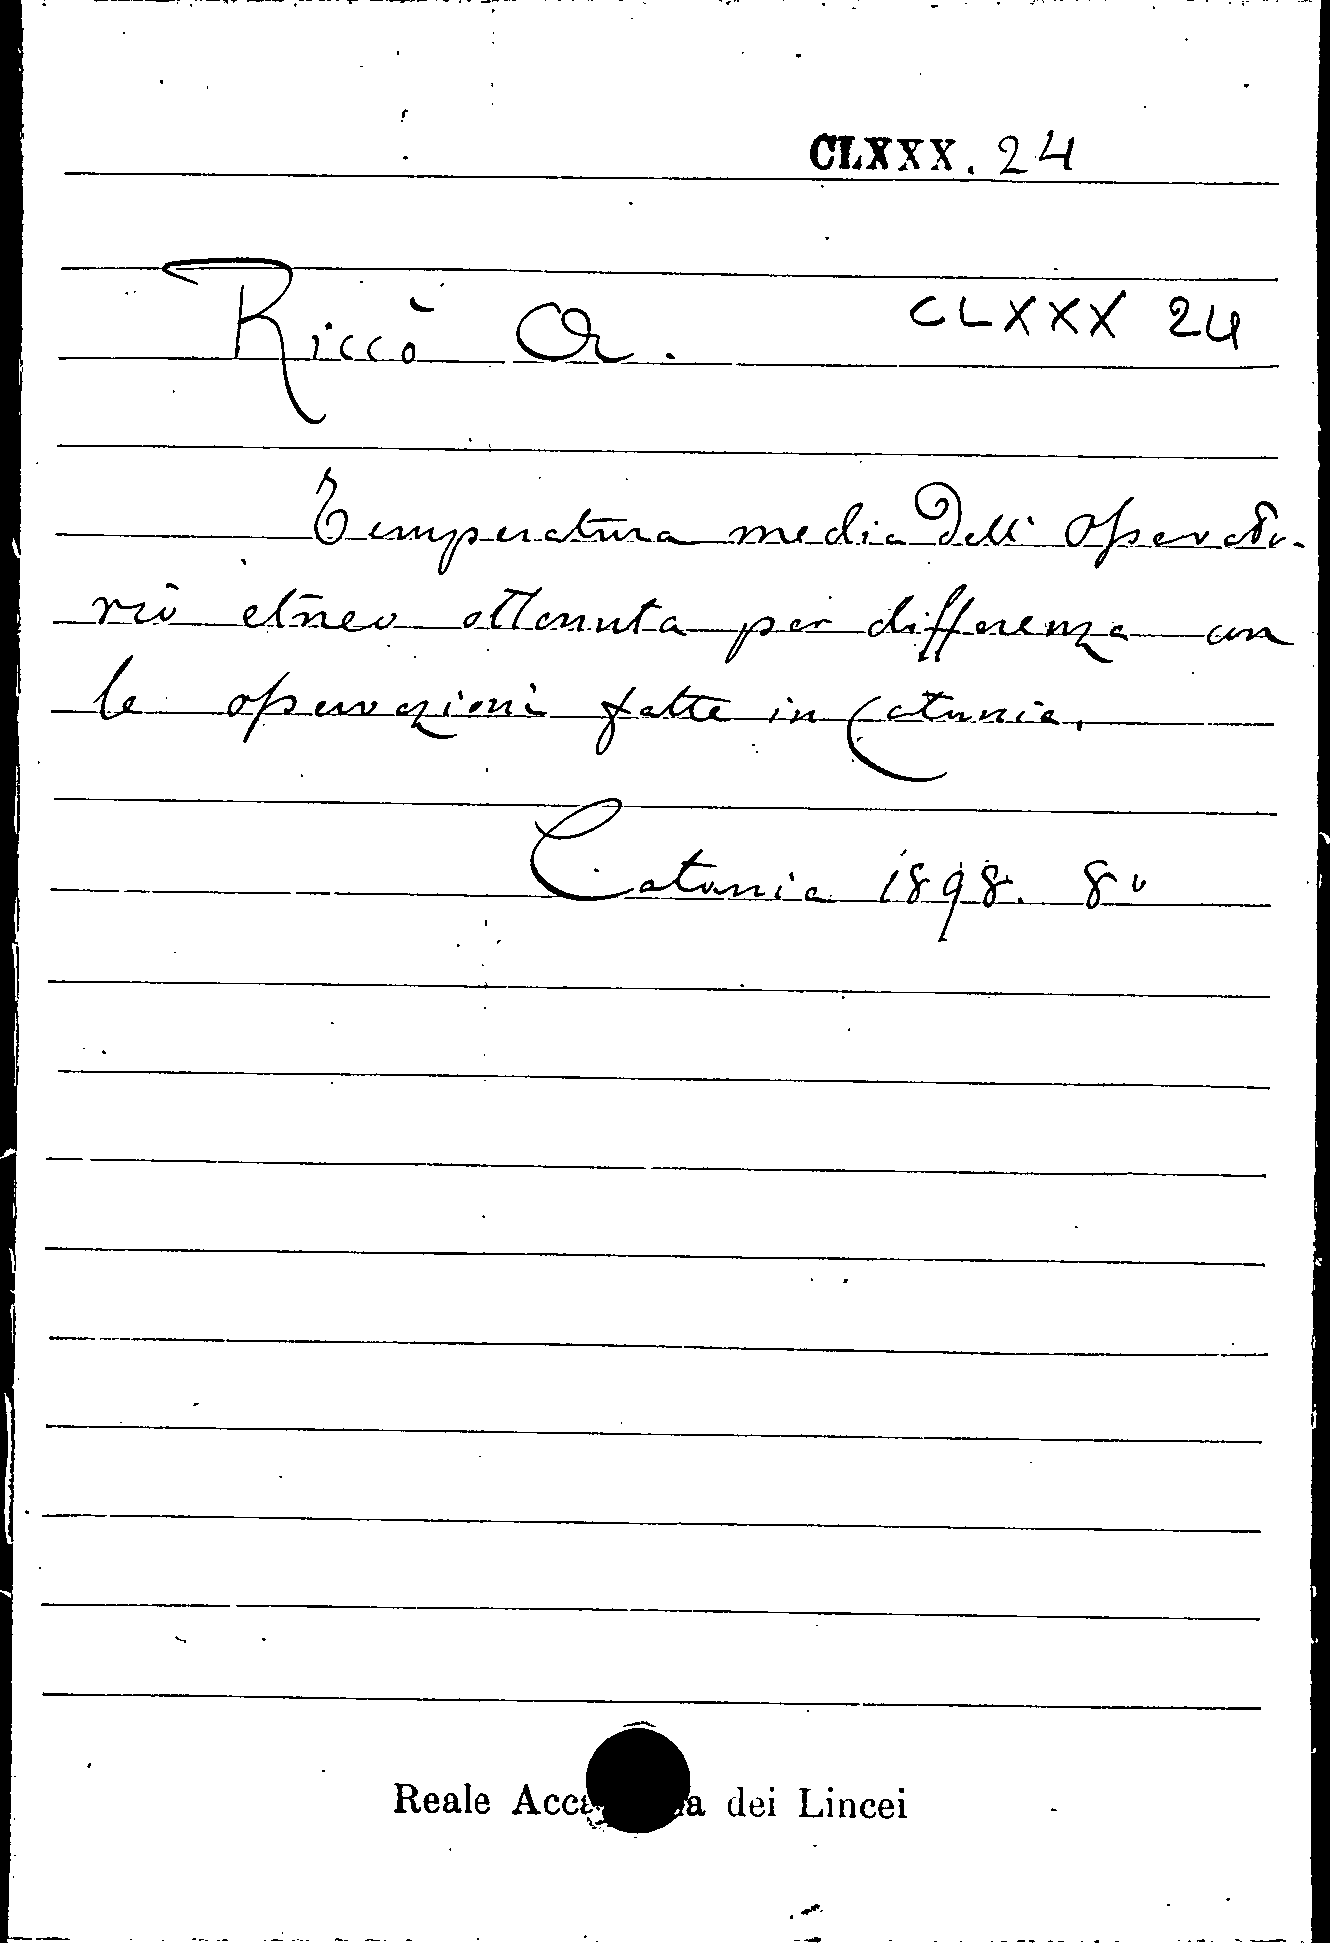 CLXXX. 24
Riccò A. CLXXX 24
Temperatura media dell' Osservato-
rio etneo ottenuta per differenza con
le osservazioni fatte in Catania.
Catania 1898. 8º
Reale Acca a dei Lincei